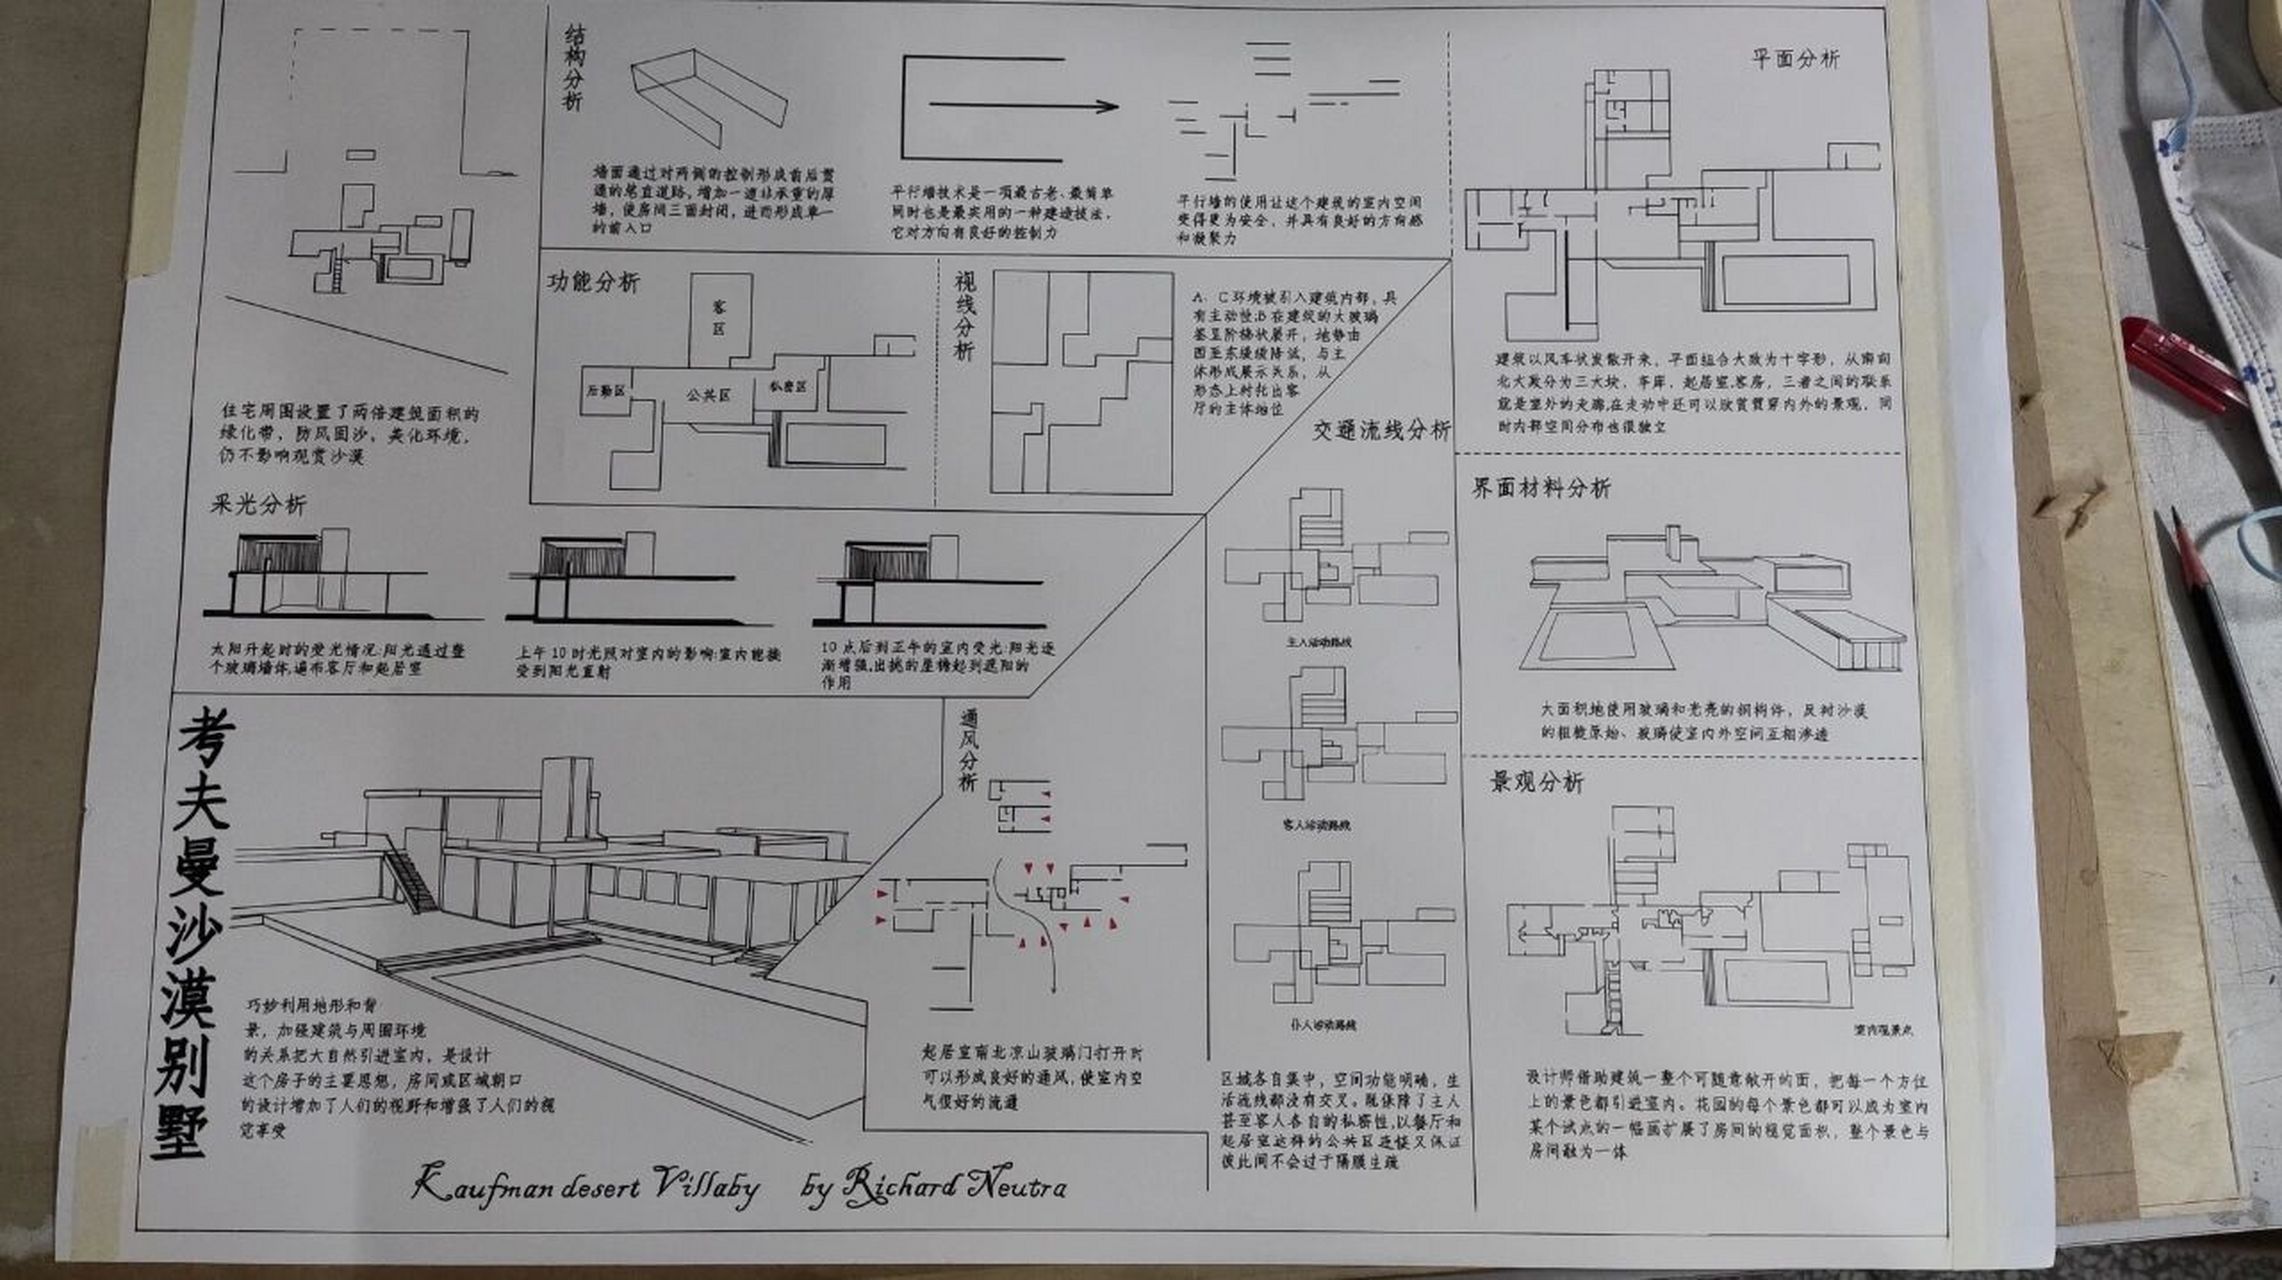 结构分析
墙面通过对两侧的控制形成前后贯
通的笔直道路，增加一道非承重的厚
墙，使房间三面封闭，进而形成单一
的前入口
平行墙技术是一项最古老、最简单
同时也是最实用的一种建造技法，
它对方向有良好的控制力
平行墙的使用让这个建筑的室内空间
变得更为安全，并具有良好的方向感
和凝聚力
平面分析
建筑以风车状发散开来，平面组合大致为十字形，从南向
北大致分为三大块，车库、起居室，客房，三者之间的联系
就是室外的走廊，在走动中还可以欣赏贯穿内外的景观，同
时内部空间分布也很独立
住宅周围设置了两倍建筑面积的
绿化带，防风固沙，美化环境，
仍不影响观赏沙漠
功能分析
客
区
后勤区
公共区
私密区
视线分析
A、C环境被引入建筑内部，具
有主动性，B在建筑的大玻璃
签呈阶梯状展开，地势由
西至东缓缓降低，与主
体形成展示关系，从
形态上衬托出客
厅的主体地位
采光分析
太阳升起时的受光情况：阳光透过整
个玻璃墙体，遍布客厅和起居室
上午10时光照对室内的影响：室内能接
受到阳光直射
10点后到正午的室内受光：阳光逐
渐增强，出挑的屋檐起到遮阳的
作用
交通流线分析
主人活动路线
客人活动路线
仆人活动路线
区域各自集中，空间功能明确，生
活流线都没有交叉。既保障了主人
甚至客人各自的私密性，以餐厅和
起居室这样的公共区连接又保证
彼此间不会过于隔膜生疏
界面材料分析
大面积地使用玻璃和光亮的钢构件，反衬沙漠
的粗糙原始、玻璃使室内外空间互相渗透
景观分析
室内观景点
设计师借助建筑一整个可随意敞开的面，把每一个方位
上的景色都引进室内。花园的每个景色都可以成为室内
某个试点的一幅画扩展了房间的视觉面积，整个景色与
房间融为一体
通风分析
起居室南北凉山玻璃门打开时
可以形成良好的通风，使室内空
气很好的流通
考夫曼沙漠别墅
巧妙利用地形和背
景，加强建筑与周围环境
的关系把大自然引进室内，是设计
这个房子的主要思想，房间或区域朝口
的设计增加了人们的视野和增强了人们的视
觉享受
Kaufman desert Villaby by Richard Neutra